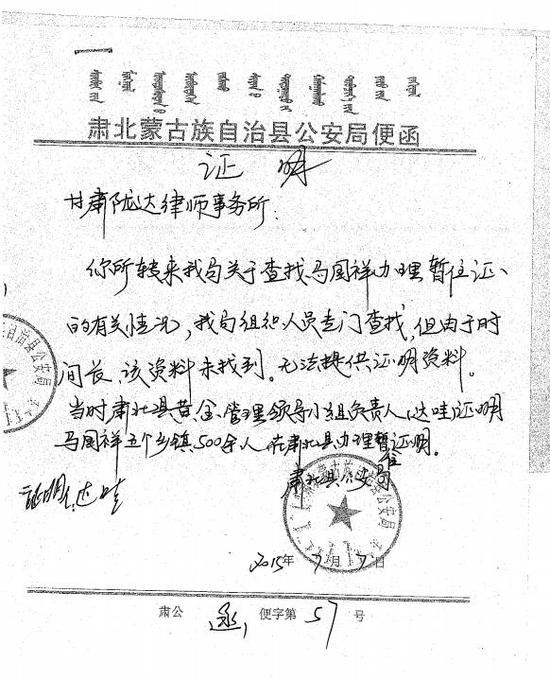 肃北蒙古族自治县公安局便函
证明
甘肃陇达律师事务所:
你所转来我局关于查找马国祥办理暂住证、
的有关情况,我局组织人员专门查找,但由于时
间长、该资料未找到。无法提供证明资料。
当时肃北县黄金管理领导小组负责人(达哇)证明
马国祥五个乡镇500余人在肃北县办理暂住证明。
肃北县公安局
证明人 达哇
2015年7月7日
肃公 便字第57号
自治县公安局